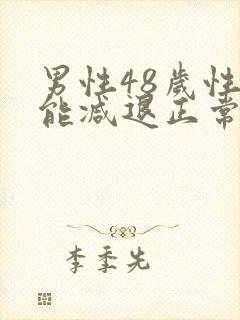 男性48歲性
能减退正常
李季先